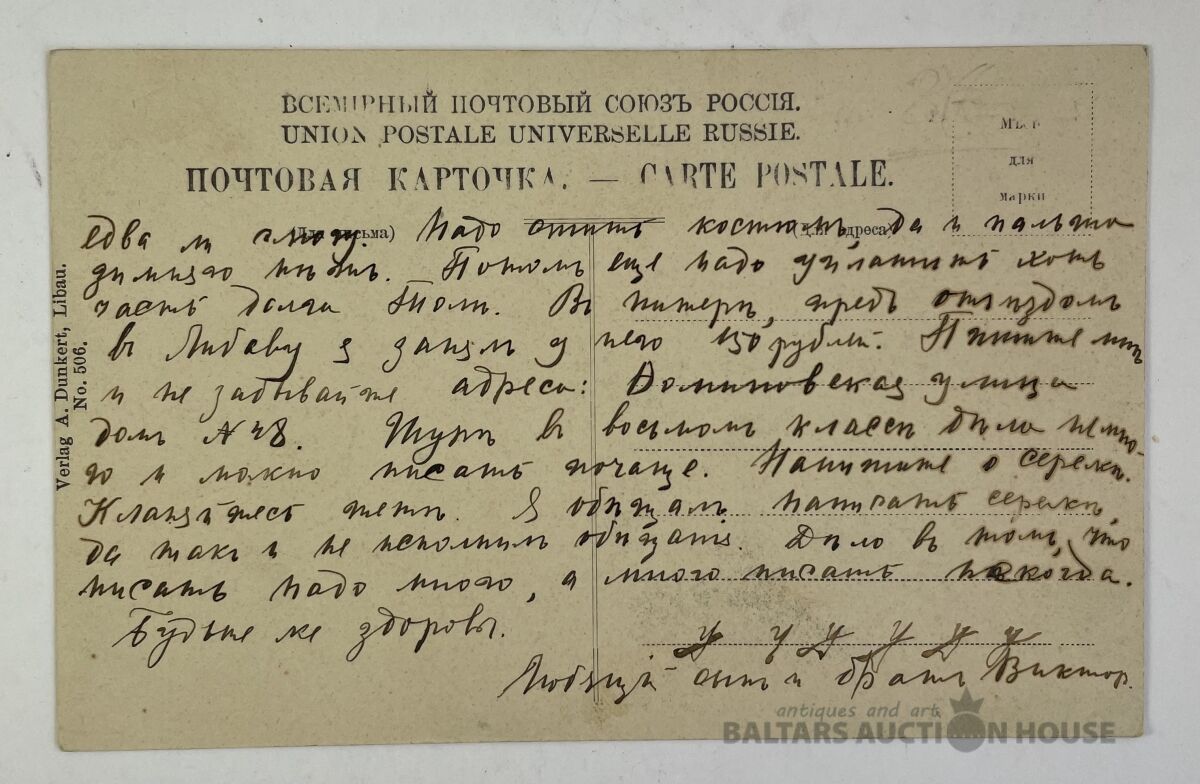 ВСЕМІРНЫЙ ПОЧТОВЫЙ СОЮЗЪ РОССІЯ.
UNION POSTALE UNIVERSELLE RUSSIE.
ПОЧТОВАЯ КАРТОЧКА. — CARTE POSTALE.
Мѣсто
для
марки
(Для письма)
(Для адреса)
Verlag A. Dunkert, Libau.
No. 506.
едва ли смогу. Надо сшить костюмъ, да и пальто
нѣтъ. Потомъ еще надо уплатить хоть
часть долга Толи. Въ питерѣ, предъ отъѣздомъ
въ Либаву я занялъ у него 150 рублей. Пишите мнѣ
и не забывайте адреса: улица
домъ № 28. Шурѣ въ восьмомъ классѣ дѣла немно-
го и можно писать почаще. Напишите о сережѣ.
Кланяйтесь тетѣ. Я обѣщалъ написать сережѣ,
да такъ и не исполнилъ обѣщанія. Дѣло въ томъ, что
писать надо много, а много писать некогда.
Будьте же здоровы.
Любящій сынъ и братъ Викторъ.
antiques and art
BALTARS AUCTION HOUSE